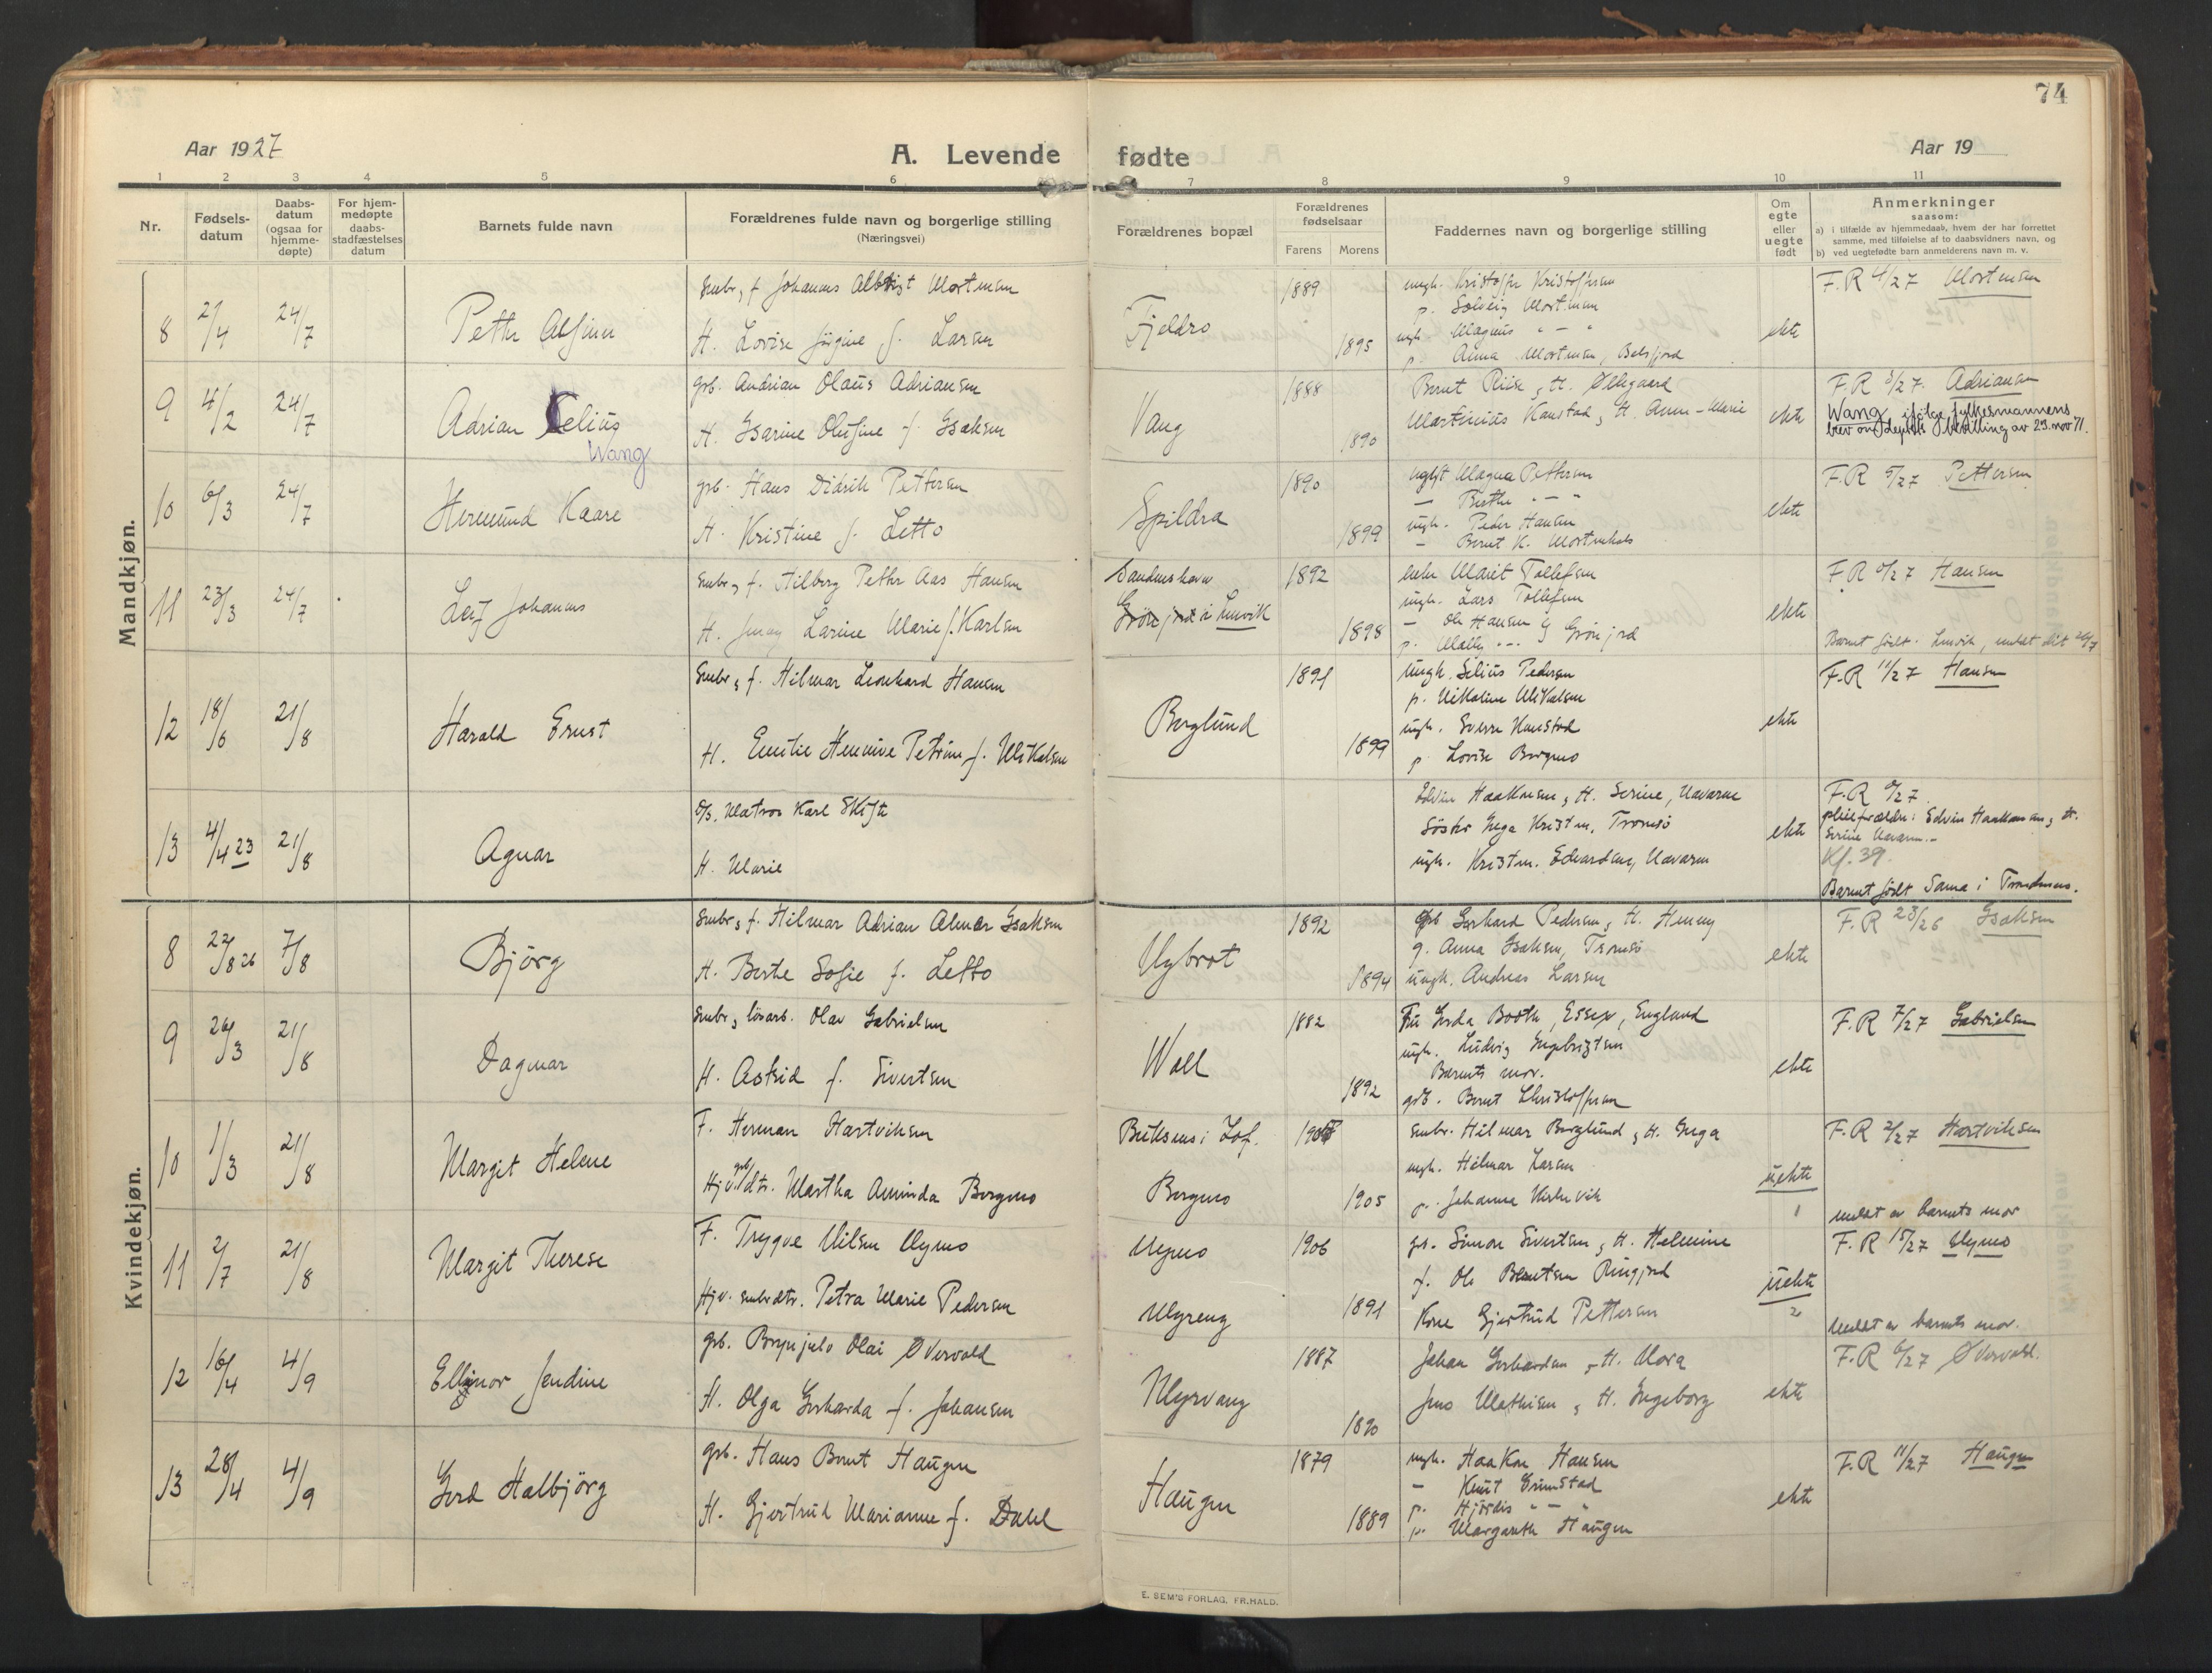 74
Aar 1927
A. Levende fødte
Aar 19
1 2 3 4 5 6 7 8 9 10 11
Nr.
Fødsels-
datum
Daabs-
datum
(ogsaa for
hjemme-
døpte)
For hjem-
medøpte
daabs-
stadfæstelses
datum
Barnets fulde navn
Forældrenes fulde navn og borgerlige stilling
(Næringsvei)
Forældrenes bopæl
Forældrenes
fødselsaar
Farens Morens
Faddernes navn og borgerlige stilling
Om
egte
eller
uegte
født
Anmerkninger
saasom:
a) i tilfælde av hjemmedaab, hvem der har forrettet
samme, med tilføielse af to daabsvidners navn, og
b) ved uegtefødte barn anmelderens navn m. v.
Mandkjøn.
8 2/4 24/7
Smbr, f Johannes Mortensen
H. Lovise Jørgine f. Larsen
Fjeldro
1889
1895
ungk. Kristoffer Kristoffersen
p. Solveig Mortensen
ungk. Magnus " - "
p. Anna Mortensen, Balsfjord
ekte
F.R 4/27 Mortensen
9 4/2 24/7
Adrian Celius
Wang
grb. Andrian Olaus Adriansen
H. Isarine Olufine f. Isaksen
Vang
1888
1890
Bernt Riise, H. Ødegaard
Martinius Kanstad, H. Anne-Marie
ekte
F.R 5/27. Adriansen
Wang, ifølge fylkesmannens
bevilling av 29. nov 71.
10 6/3 24/7
Hermund Kaare
grb. Hans Didrik Pettersen
H. Kristine f. Letto
Spildra
1890
1899
Magna Pettersen
— Berthe " — "
ungk. Peder Hansen
— Bernt K.
ekte
F.R 5/27 Pettersen
11 23/3 24/7
Leif Johannes
Smbr, f. Hilberg Petter Aas Hansen
H. Jenny Larine Marie f. Karlsen
Lenvik
1892
1898
enke Marit Tollefsen
ungk. Lars Tollefsen
— Ole Hansen
p. Malla " - " Grønjord
ekte
F.R 9/27 Hansen
Barnet født i Lenvik, meldt dit 26/7
12 18/6 21/8
Harald Ernst
Smbr, f. Hilmar Leonhard Hansen
H. Emilie Hennine Petrine f. Mikalsen
Berglund
1891
1899
Ungk. Selius Pedersen
p. Nikoline Mikalsen
ungk. Sverre Kanstad
p. Lovise Bergmo
ekte
F.R 11/27 Hansen
13 4/4 23 21/8
Agnar
Matros Karl Skifte
H. Marie
Edvin Haakonsen, H. Serine, Navaren
Søster Inga Kristen, Tromsø
ungk. Kristen. Edvardsen, Navaren
ekte
F.R 9/27
pleieforældre: Edvin Haakonsen, H.
Serine Navaren.-
Kf. 39.
Barnet født Sama i Trondenes.
Kvindekjøn.
8 22/8 26 7/8
Bjørg
Smbr, f. Hilmar Adrian Almar Isaksen
H. Berte Sofie f. Letto
Nybrot
1892
1894
grb Gerhard Pedersen, H. Henny
g. Anna Isaksen, Tromsø
ungk. Andreas Larsen
ekte
F.R 23/26 Isaksen
9 26/3 21/8
Dagmar
Smbr, løsarb. Olav Gabrielsen
H. Astrid f. Sivertsen
Woll
1882
1892
Fru Gerda Booth, Essex, England
ungk. Ludvig Ingebrigtsen
Barnets mor.
grb. Bernt Christoffersen
ekte
F.R 7/27 Gabrielsen
10 1/3 21/8
Margit Helene
F. Herman Hartviksen
Hjv. grb/dtr. Martha Aminda Bergmo
Buksnes i Lof.
Bergmo
1905
Smbr. Hilmar Berglund, H. Inga
ungk. Hilmar Larsen
p. Johanna Kirkevik
uekte
1
F.R 2/27 Hartviksen
meldt av barnets mor
11 2/7 21/8
Margit Therese
F. Trygve Nilsen Mymo
Hjv. smbrdtr. Petra Marie Pedersen
Mymo
Myreng
1906
1891
gr. Simon Sivertsen, H. Helmine
f. Ole Berntsen Ringjord
Kone Gjertrud Pettersen
uekte
2
F.R 15/27 Mymo
Meldt av barnets mor.
12 16/4 4/9
Ellinor Jendine
grb. Brynjulv Olai Øvervold
H. Olga Gerharda f. Johansen
Myrvang
1887
1890
Johan Gerhardsen, H. Nora
Jens Mathisen, H. Ingeborg
ekte
F.R 6/27 Øvervold.
13 28/4 4/9
Gerd Halbjørg
grb. Hans Bernt Haugen
H. Gjertrud Marianne f. Dahl
Haugen
1879
1889
ungk. Haakon Hansen
— Knut Grimstad
p. Hjørdis " — "
p. Margareth Haugen
ekte
F.R 11/27 Haugen
E. SEM'S FORLAG, FR.HALD.